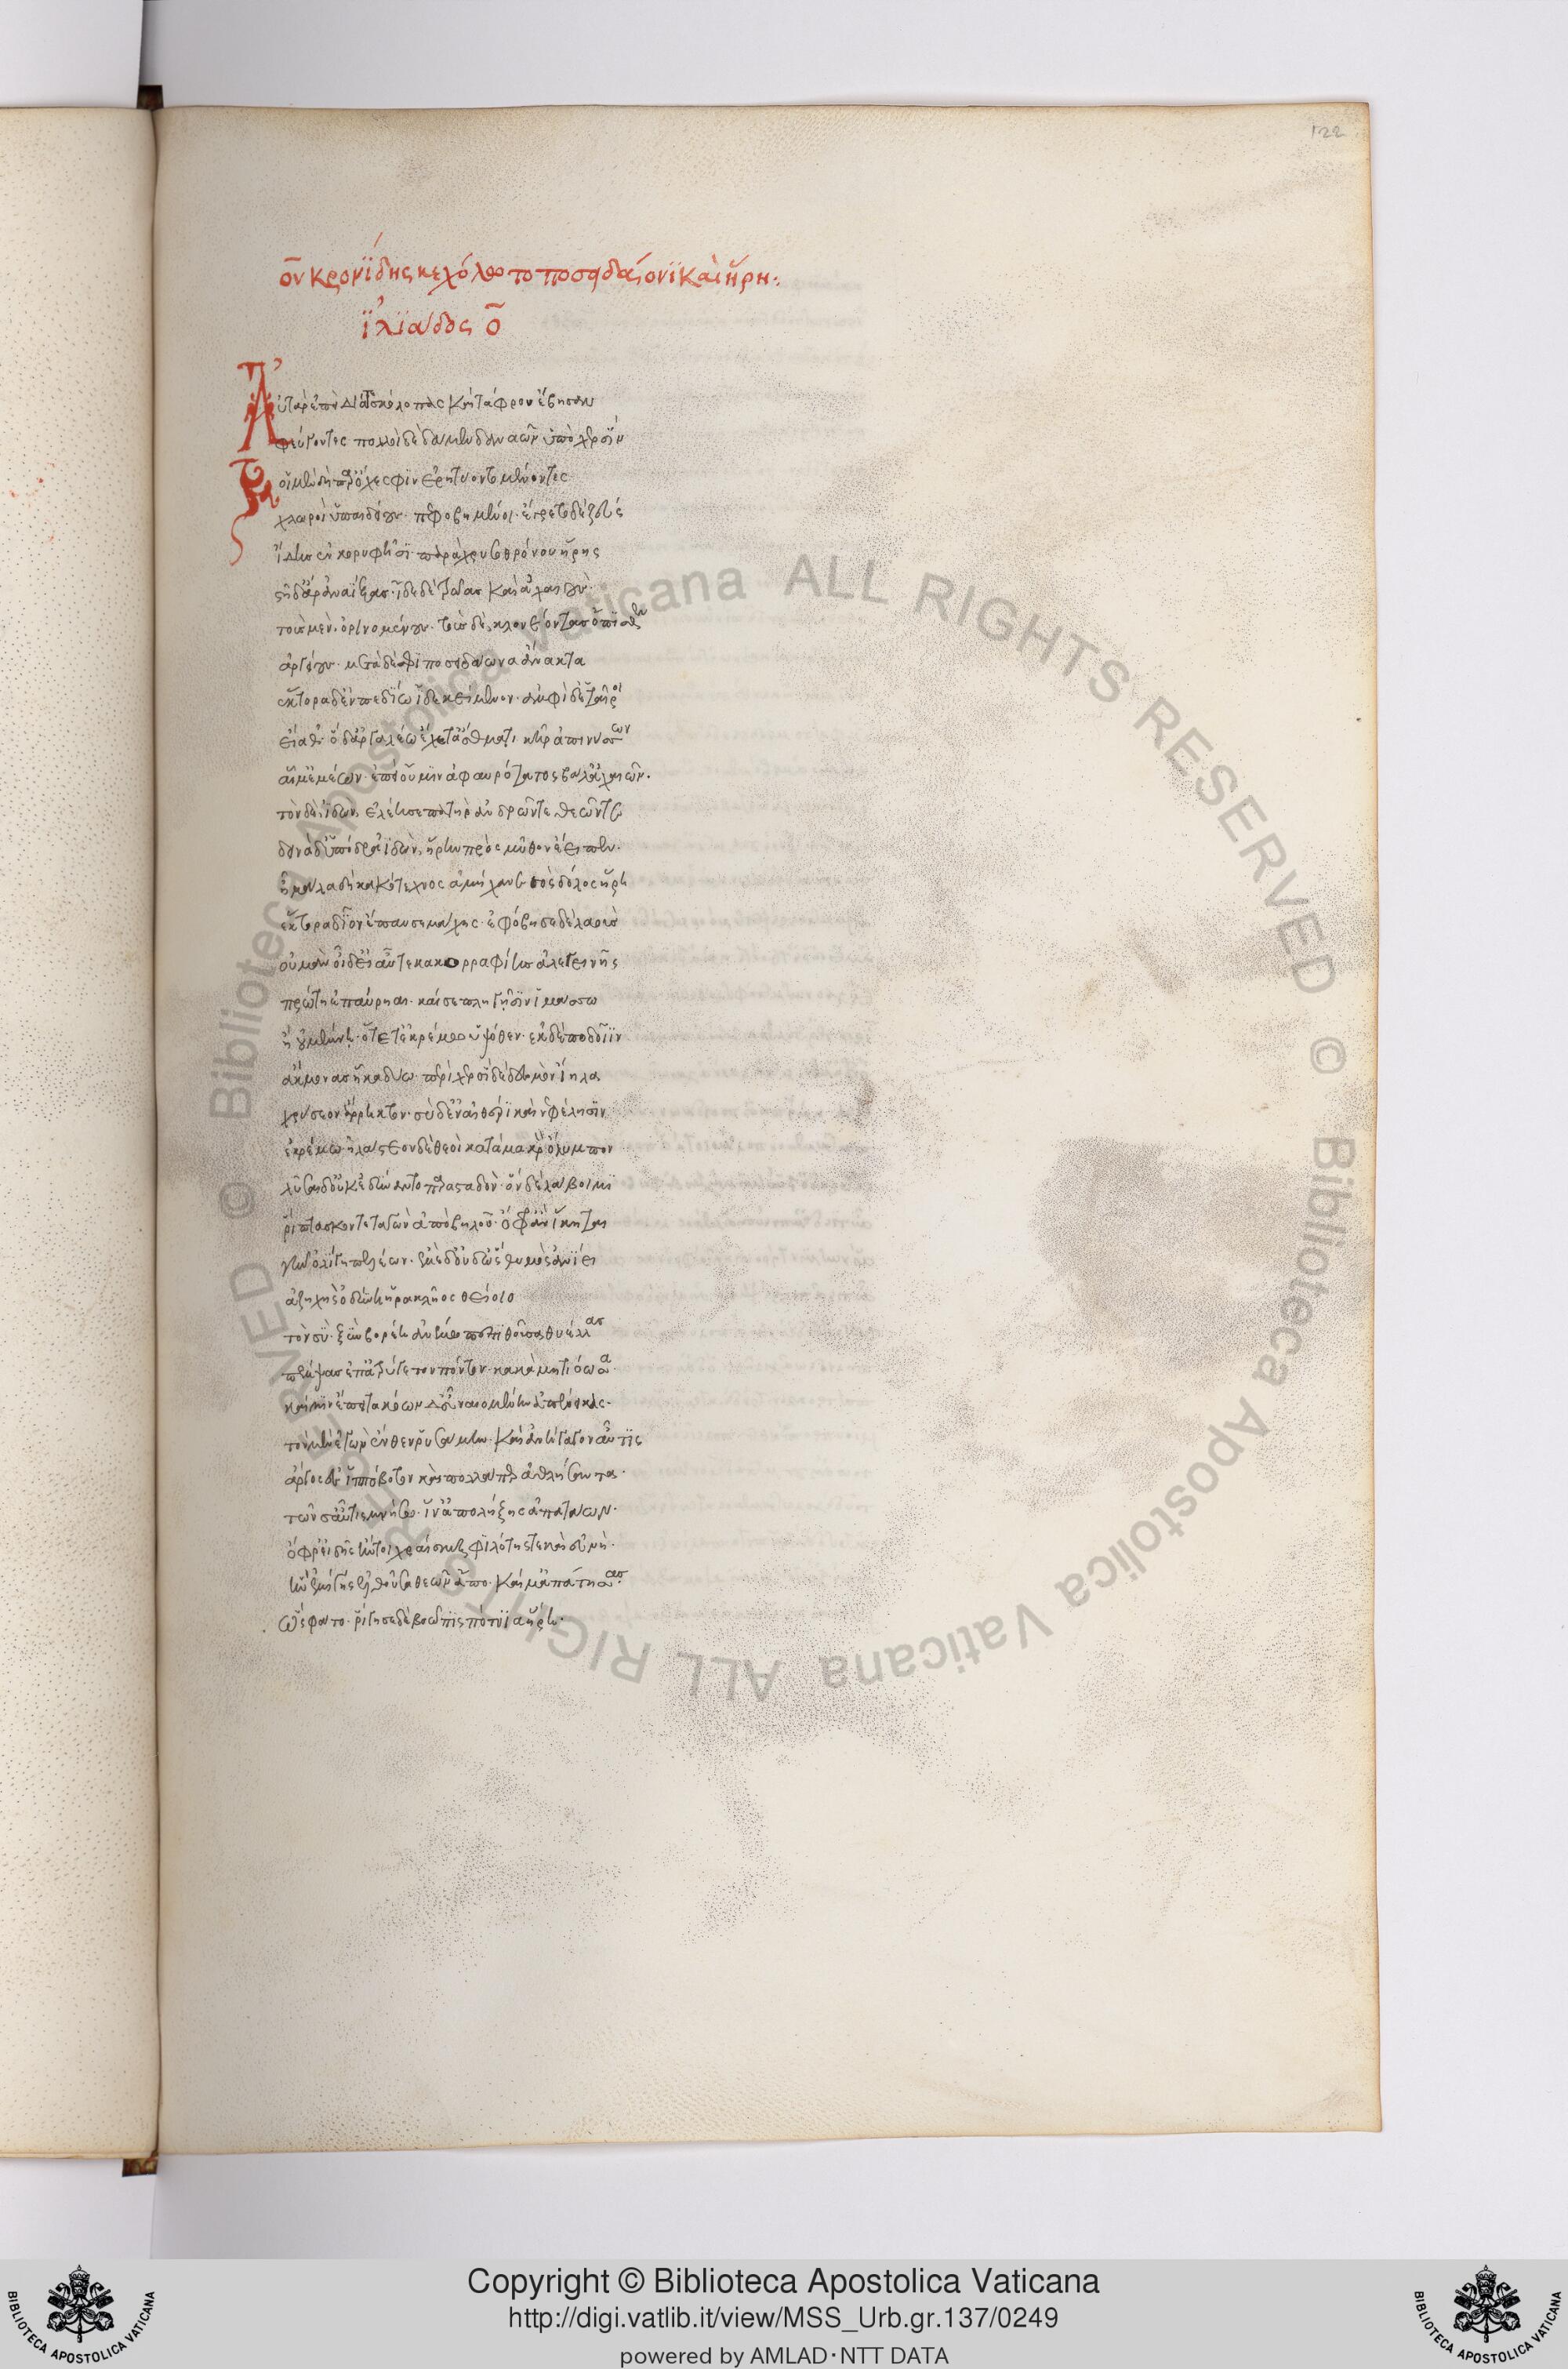 122
οῦ Κρονίδης κεχόλωτο ποσειδάονϊ καὶ ἥρη:
ἰλϊάδος ο̄
Αὐτὰρ ἐπεὶ διά τε σκόλοπας καὶ τάφρον ἔβησαν
φεύγοντες πολλοὶ δὲ δάμεν δαναῶν ὑπὸ χερσὶν
οἱ μὲν δὴ παρ' ὄχεσφϊν ἐρητύοντο μένοντες
χλωροὶ ὑπαὶ δέους· πεφοβημένοι· ἔγρετο δὲ ζεὺς
ἴδης ἐν κορυφῇσϊ· παρὰ χρυσοθρόνου ἥρης
στῆ δ' ἄρ' ἀναΐξας· ἴδε δὲ τρῶας καὶ ἀχαιούς·
τοὺς μὲν, ὀρινομένους· τοὺς δὲ, κλονέοντας ὄπϊσθεν
ἀργείους· μετὰ δέ σφι ποσειδάωνα ἄνακτα
ἕκτορα δ' ἐν πεδίῳ ἴδε κείμενον· ἀμφὶ δ' ἑταῖροι
εἵαθ'· ὁ δ' ἀργαλέῳ ἔχετ' ἄσθματι κῆρ ἀπινύσσων
αἷμ' ἐμέων· ἐπεὶ οὔ μϊν ἀφαυρότατος βάλ' ἀχαιῶν.
τὸν δὲ, ἰδὼν, ἐλέησε πατὴρ ἀνδρῶν τε θεῶν τε
δεινὰ δ' ὑπόδρα ἰδὼν, ἥρην πρὸς μῦθον ἔειπεν·
ἦ μάλα δὴ κακότεχνος ἀμήχανε σὸς δόλος ἥρη
ἕκτορα δῖον ἔπαυσε μάχης· ἐφόβησε δὲ λαοὺς
οὐ μὰν οἶδ' εἰ αὖτε κακορραφίης ἀλεγεινῆς
πρώτη ἐπαύρηαι· καί σε πληγῇσϊν ἱμάσσω
ἢ οὐ μέμνῃ· ὅτε τ' ἐκρέμω ὑψόθεν· ἐκ δὲ ποδοῖϊν
ἄκμονας ἧκα δύω· περὶ χερσὶ δὲ δεσμὸν ἴηλα
χρύσεον ἄρρηκτον· σὺ δ' ἐν αἰθέρϊ καὶ νεφέλησϊν
ἐκρέμω· ἠλάστεον δὲ θεοὶ κατὰ μακρὸν ὄλυμπον
λῦσαι δ' οὐκ ἐδύναντο παρασταδόν· ὃν δὲ λάβοιμϊ
ῥίπτασκον τεταγὼν ἀπὸ βηλοῦ· ὄφρ' ἂν ἵκηται
γῆν ὀλιγηπελέων· ἐμὲ δ' οὐδ' ὣς θυμὸς ἀνϊει
ἀζηχὴς ὀδύνη ἡρακλῆος θείοιο
τὸν σὺ· ξὺν βορέῃ ἀνέμω πεπϊθοῦσα θυέλλας
πέμψας ἐπ' ἀτρύγετον πόντον· κακὰ μητιόωσα·
καί μϊν ἔπειτα κόων δ' εὖ ναιομένην ἀπένεικας·
τὸν μὲν ἐγὼν ἔνθεν ῥυσάμην· καὶ ἀνήγαγον αὖτϊς
ἄργος ἐς ἱππόβοτον καὶ πολλά περ ἀθλήσαντα·
τῶν σ' αὖτις μνήσω· ἵν' ἀπολήξης ἀπατάων·
ὄφρ' εἰδῇς ἤν τοι χραίσμῃ φϊλότης τε καὶ εὐνὴ·
ἣν ἐμίγης ἐλθοῦσα θεῶν ἄπο· καί μ' ἀπάτησας:
ὣς φάτο· ῥίγησε δὲ βοῶπϊς πότνϊα ἥρη·
Copyright © Biblioteca Apostolica Vaticana
http://digi.vatlib.it/view/MSS_Urb.gr.137/0249
powered by AMLAD·NTT DATA